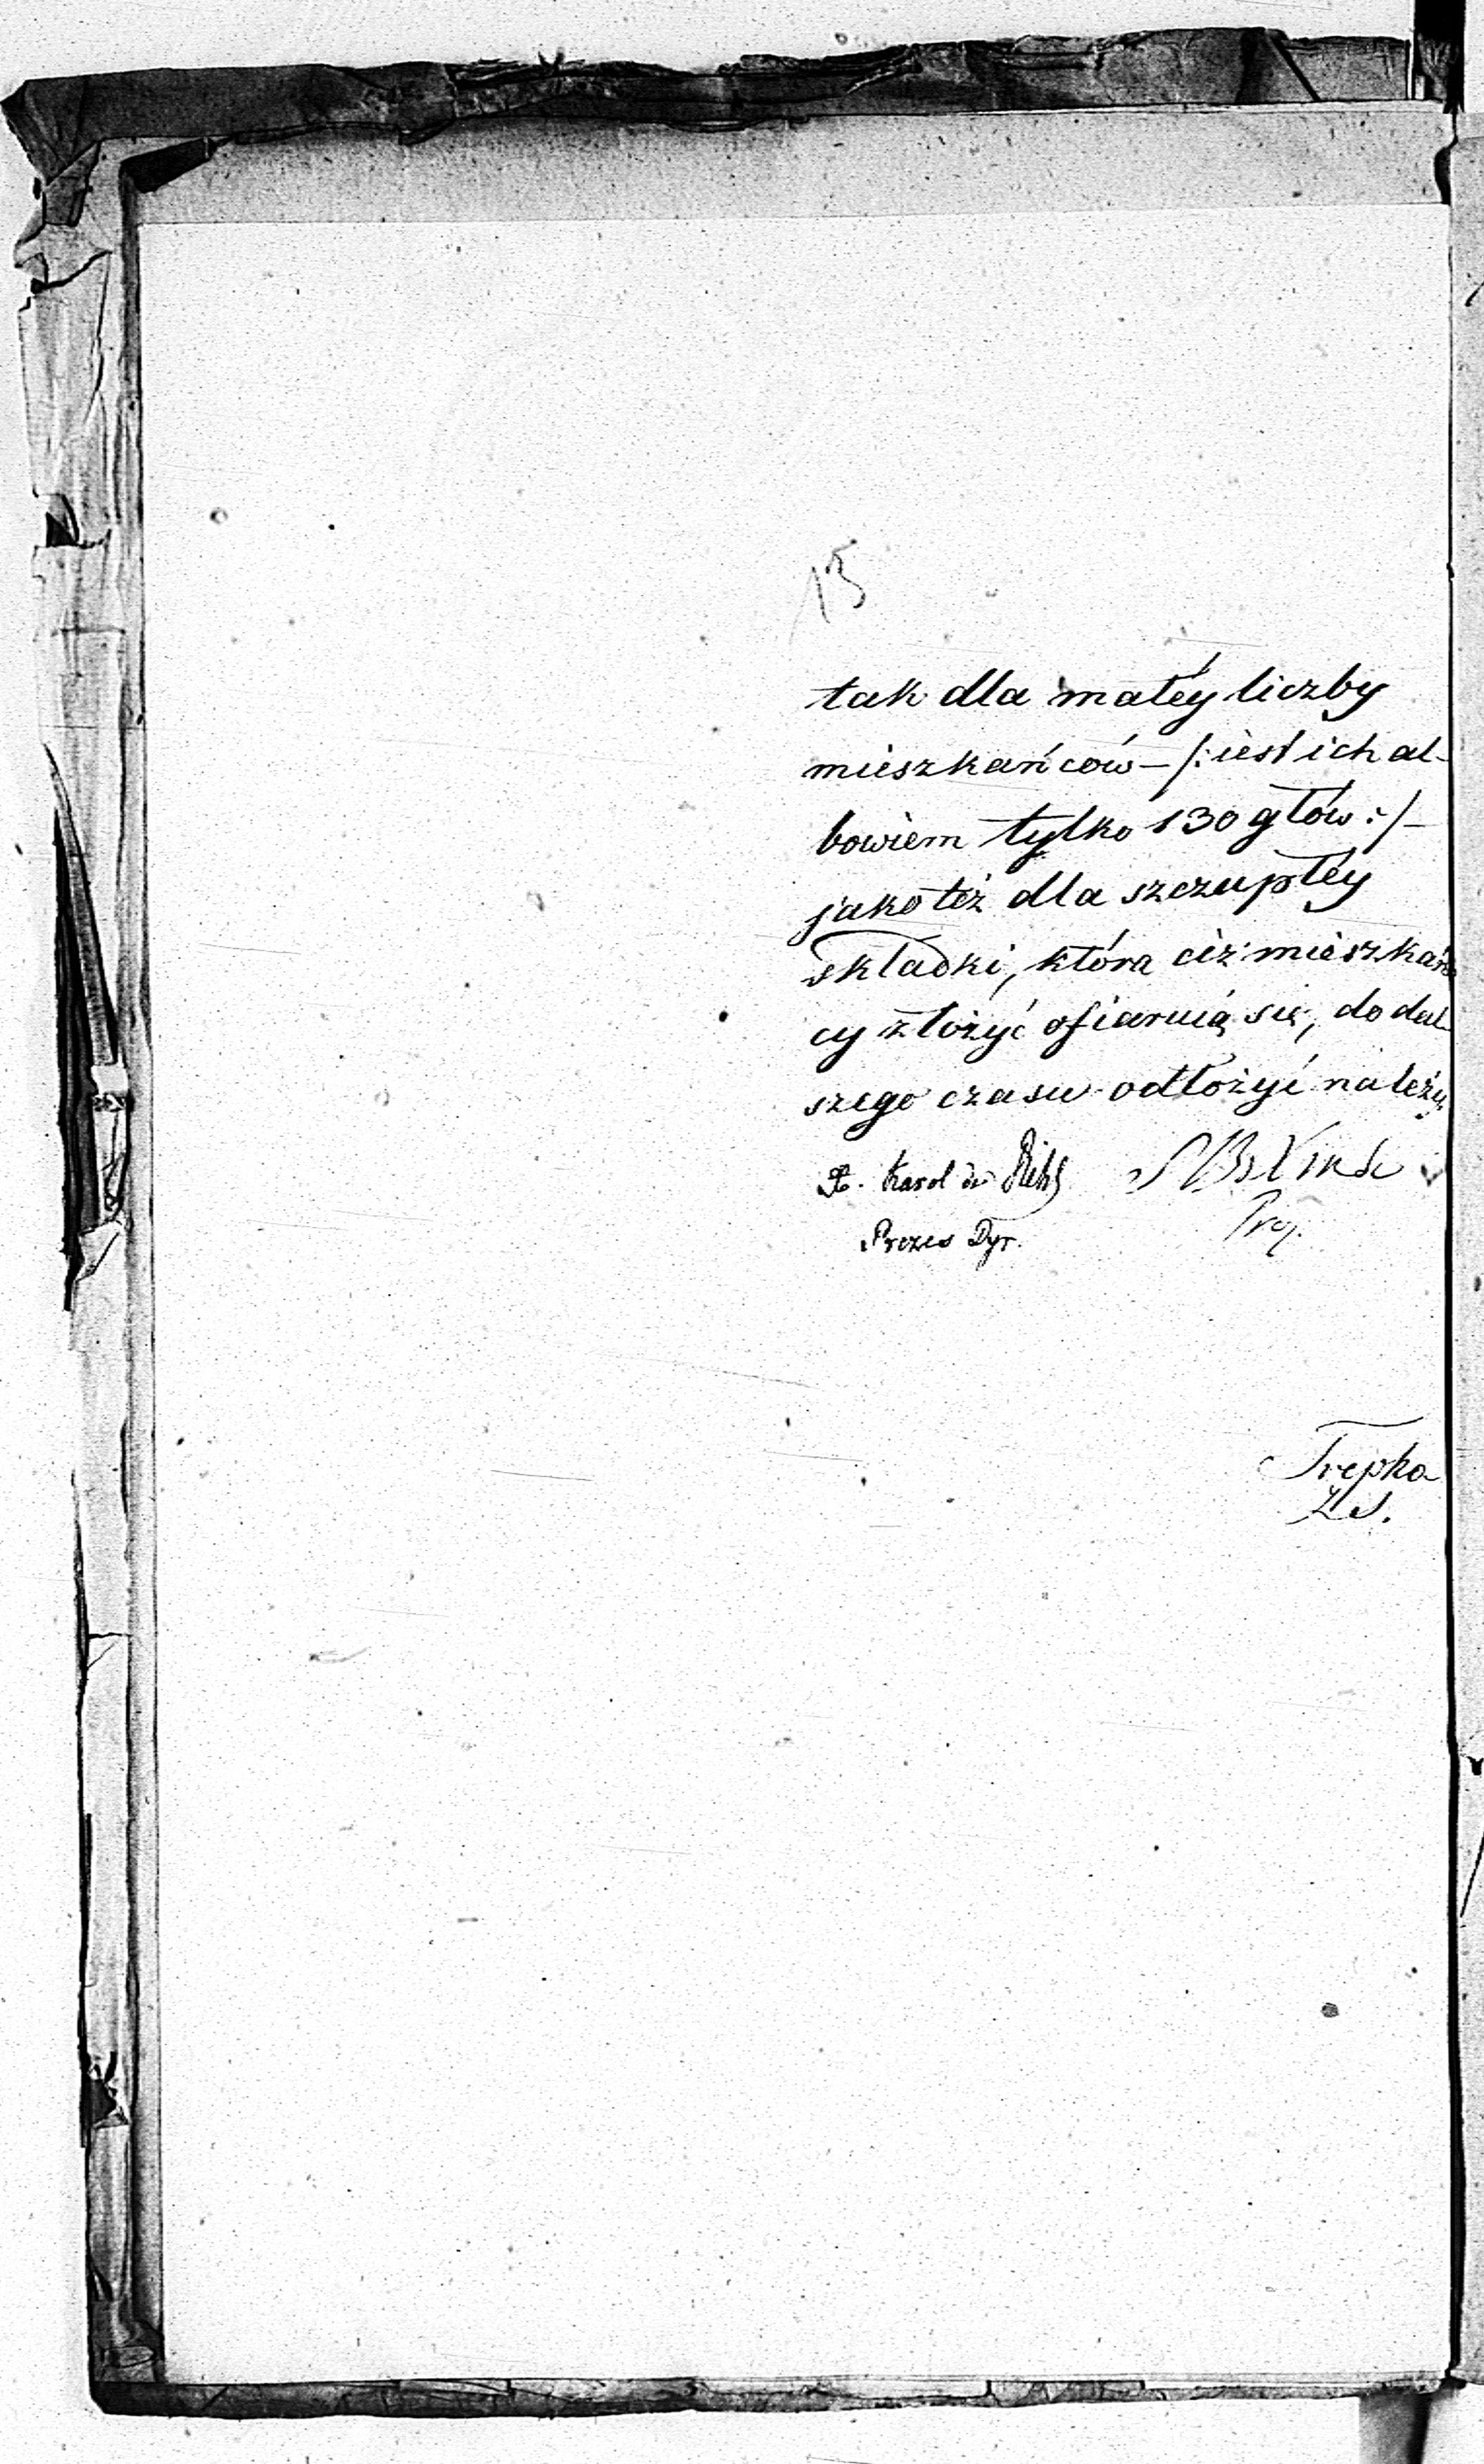 15
tak dla małéy liczby
mieszkańców – /: iest ich al-
bowiem tylko 130 głów :/ –
jako też dla szczupłéy
składki, którą ciż mieszkań
cy złożyć ofiaruią się, do dal
szego czasu odłożyć należy,
Karol de
Prezes Dyr.
Trepka
Z S.